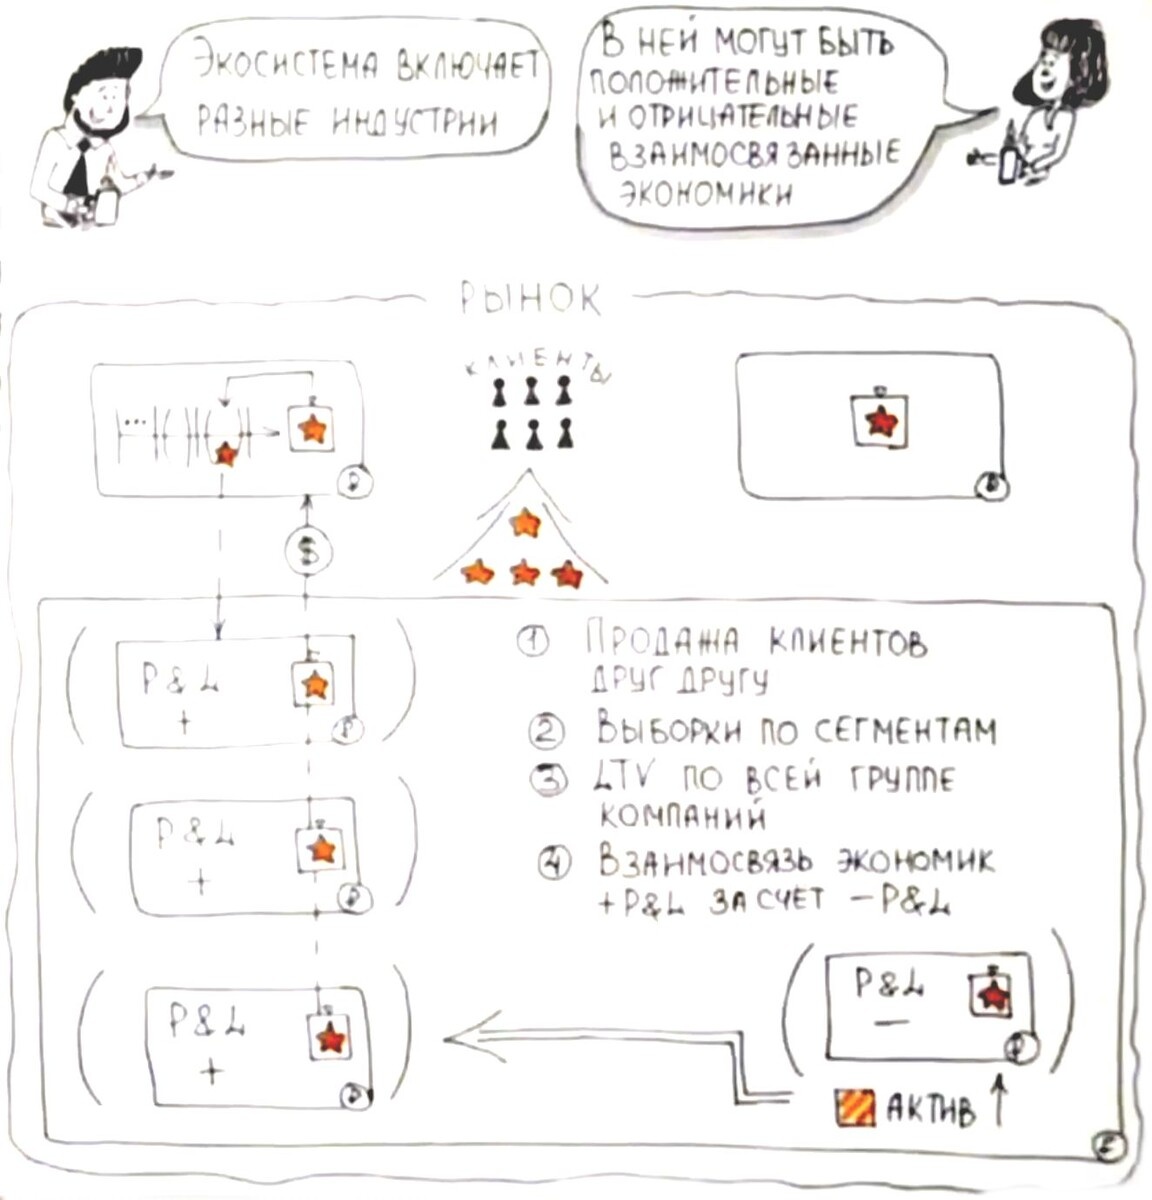 ЭКОСИСТЕМА ВКЛЮЧАЕТ
РАЗНЫЕ ИНДУСТРИИ
В НЕЙ МОГУТ БЫТЬ
ПОЛОЖИТЕЛЬНЫЕ
И ОТРИЦАТЕЛЬНЫЕ
ВЗАИМОСВЯЗАННЫЕ
ЭКОНОМИКИ
РЫНОК
КЛИЕНТЫ
...
P
P
$
P&L
+
P
P&L
+
P
P&L
+
P
① ПРОДАЖА КЛИЕНТОВ
ДРУГ ДРУГУ
② ВЫБОРКИ ПО СЕГМЕНТАМ
③ LTV ПО ВСЕЙ ГРУППЕ
КОМПАНИЙ
④ ВЗАИМОСВЯЗЬ ЭКОНОМИК
+P&L ЗА СЧЕТ –P&L
P&L
–
P
АКТИВ ↑